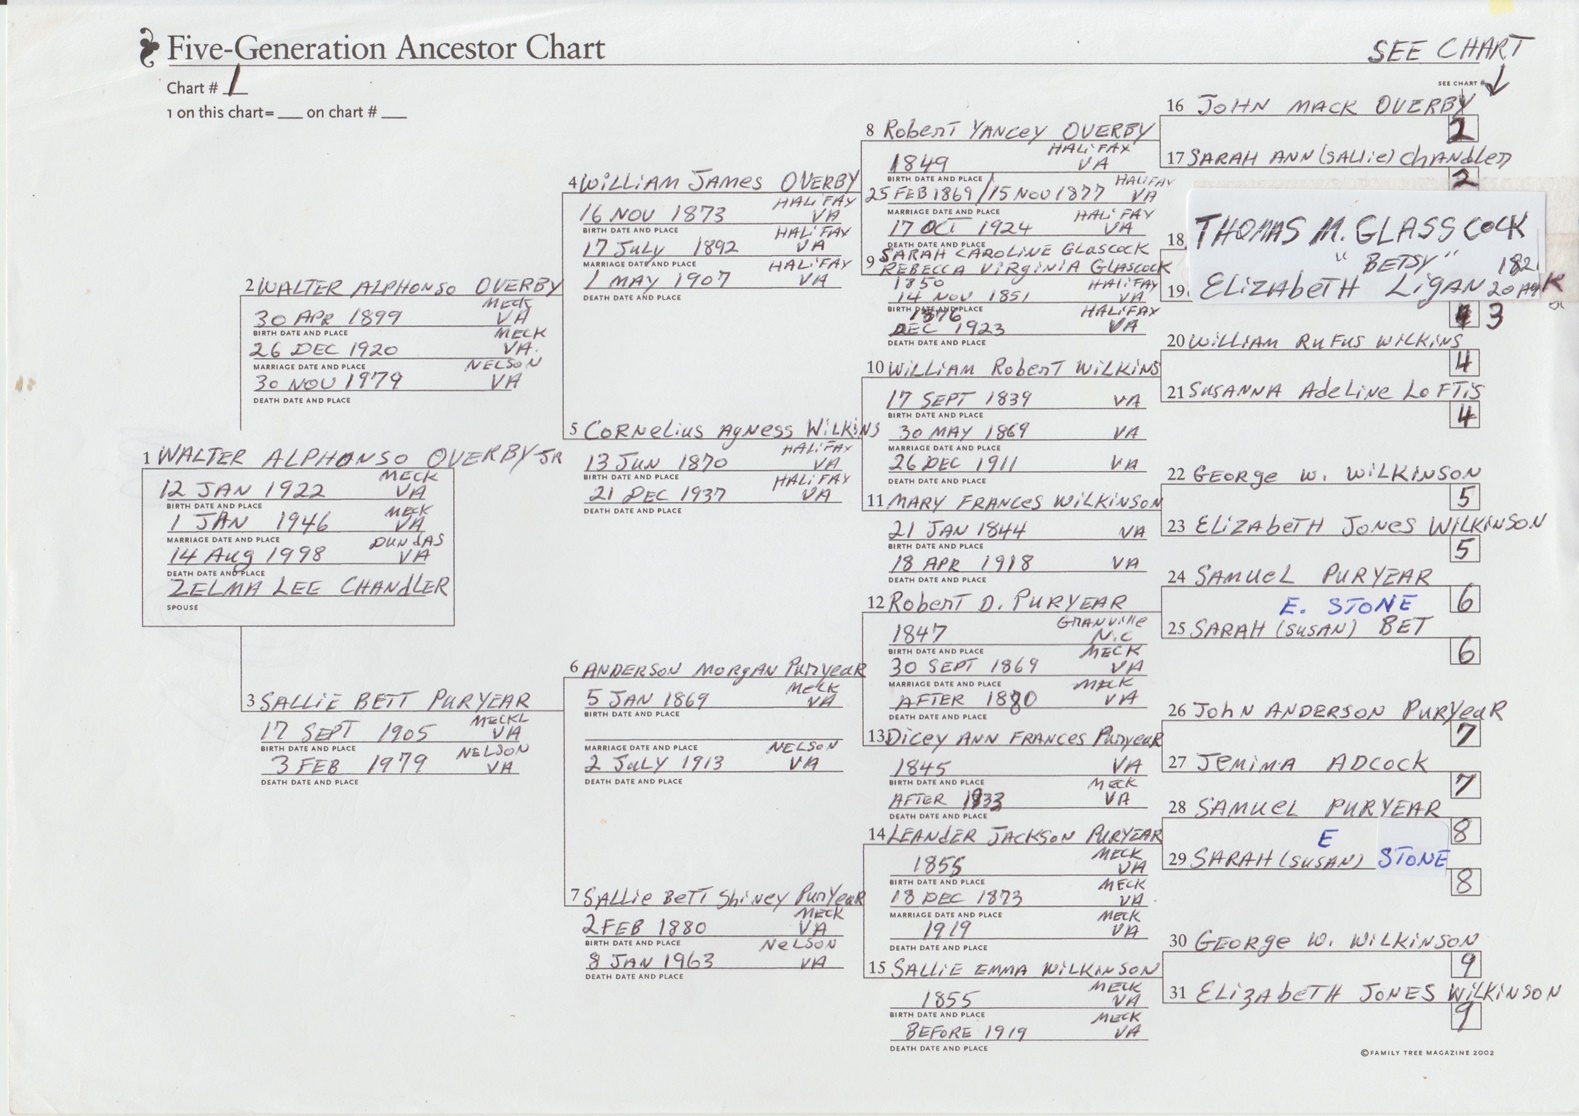 Five-Generation Ancestor Chart
SEE CHART
Chart # 1
SEE CHART #
1 on this chart= ___ on chart # ___
1 WALTER ALPHONSO OVERBY JR
MECK
12 JAN 1922 VA
BIRTH DATE AND PLACE
MECK
1 JAN 1946 VA
MARRIAGE DATE AND PLACE
DUNDAS
14 Aug 1998 VA
DEATH DATE AND PLACE
ZELMA LEE CHANDLER
SPOUSE
2 WALTER ALPHONSO OVERBY
MECK
30 APR 1899 VA
BIRTH DATE AND PLACE
MECK
26 DEC 1920 VA.
MARRIAGE DATE AND PLACE
NELSON
30 NOV 1979 VA
DEATH DATE AND PLACE
3 SALLIE BETT PURYEAR
MECKL
17 SEPT 1905 VA
BIRTH DATE AND PLACE
NELSON
3 FEB 1979 VA
DEATH DATE AND PLACE
4 WILLIAM JAMES OVERBY
HALIFAX
16 NOV 1873 VA
BIRTH DATE AND PLACE
HALIFAX
17 July 1892 VA
MARRIAGE DATE AND PLACE
HALIFAX
1 MAY 1907 VA
DEATH DATE AND PLACE
5 CORNELIUS AGNESS WILKINS
HALIFAX
13 JUN 1870 VA
BIRTH DATE AND PLACE
HALIFAX
21 DEC 1937 VA
DEATH DATE AND PLACE
6 ANDERSON MORGAN PURYEAR
MECK
5 JAN 1869 VA
BIRTH DATE AND PLACE
MARRIAGE DATE AND PLACE
NELSON
2 JULY 1913 VA
DEATH DATE AND PLACE
7 SALLIE BETT SHINEY PURYEAR
MECK
2 FEB 1880 VA
BIRTH DATE AND PLACE
NELSON
8 JAN 1963 VA
DEATH DATE AND PLACE
8 Robert YANCEY OVERBY
HALIFAX
1849 VA
BIRTH DATE AND PLACE
HALIFAX
25 FEB 1869/15 NOV 1877 VA
MARRIAGE DATE AND PLACE
HALIFAX
17 OCT 1924 VA
DEATH DATE AND PLACE
SARAH CAROLINE GLASCOCK
9 REBECCA VIRGINIA GLASCOCK
1850 HALIFAX
14 NOV 1851 VA
BIRTH DATE AND PLACE
HALIFAX
DEC 1923 VA
DEATH DATE AND PLACE
10 WILLIAM Robert WILKINS
17 SEPT 1839 VA
BIRTH DATE AND PLACE
30 MAY 1869 VA
MARRIAGE DATE AND PLACE
26 DEC 1911 VA
DEATH DATE AND PLACE
11 MARY FRANCES WILKINSON
21 JAN 1844 VA
BIRTH DATE AND PLACE
18 APR 1918 VA
DEATH DATE AND PLACE
12 Robert D. PURYEAR
GRANVILLE
1847 N.C
BIRTH DATE AND PLACE
MECK
30 SEPT 1869 VA
MARRIAGE DATE AND PLACE
MECK
AFTER 1880 VA
DEATH DATE AND PLACE
13 DICEY ANN FRANCES PURYEAR
1845 VA
BIRTH DATE AND PLACE
MECK
AFTER 1933 VA
DEATH DATE AND PLACE
14 LEANDER JACKSON PURYEAR
MECK
1855 VA
BIRTH DATE AND PLACE
MECK
18 DEC 1873 VA
MARRIAGE DATE AND PLACE
MECK
1919 VA
DEATH DATE AND PLACE
15 SALLIE EMMA WILKINSON
MECK
1855 VA
BIRTH DATE AND PLACE
MECK
BEFORE 1919 VA
DEATH DATE AND PLACE
16 JOHN MACK OVERBY
2
17 SARAH ANN (SALLIE) CHANDLER
2
18 THOMAS M. GLASSCOCK
"BETSY"
19 ELIZABETH LIGAN
3
20 WILLIAM RUFUS WILKINS
4
21 SUSANNA ADELINE LOFTIS
4
22 GEORGE W. WILKINSON
5
23 ELIZABETH JONES WILKINSON
5
24 SAMUEL PURYEAR
6
E. STONE
25 SARAH (SUSAN) BET
6
26 JOHN ANDERSON PURYEAR
7
27 JEMIMA ADCOCK
7
28 SAMUEL PURYEAR
8
E
29 SARAH (SUSAN) STONE
8
30 GEORGE W. WILKINSON
9
31 ELIZABETH JONES WILKINSON
9
©FAMILY TREE MAGAZINE 2002